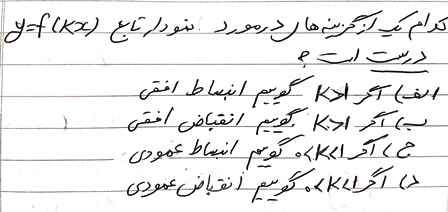 کدام یک از گزینه‌های در مورد نمودار تابع y=f(kx)
درست است ؟
الف) اگر k>1 گوییم انبساط افقی
ب) اگر k>1 گوییم انقباض افقی
ج) اگر 0<k<1 گوییم انبساط عمودی
د) اگر 0<k<1 گوییم انقباض عمودی